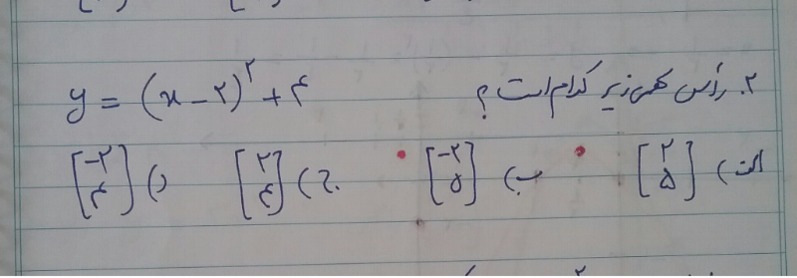 ۲. رأس سهمی زیر کدام است؟ y = (x - ۲)^۲ + ۴
الف) [۲ ۵] ب) [-۲ ۵] ج) [۲ ۴] د) [-۲ ۴]